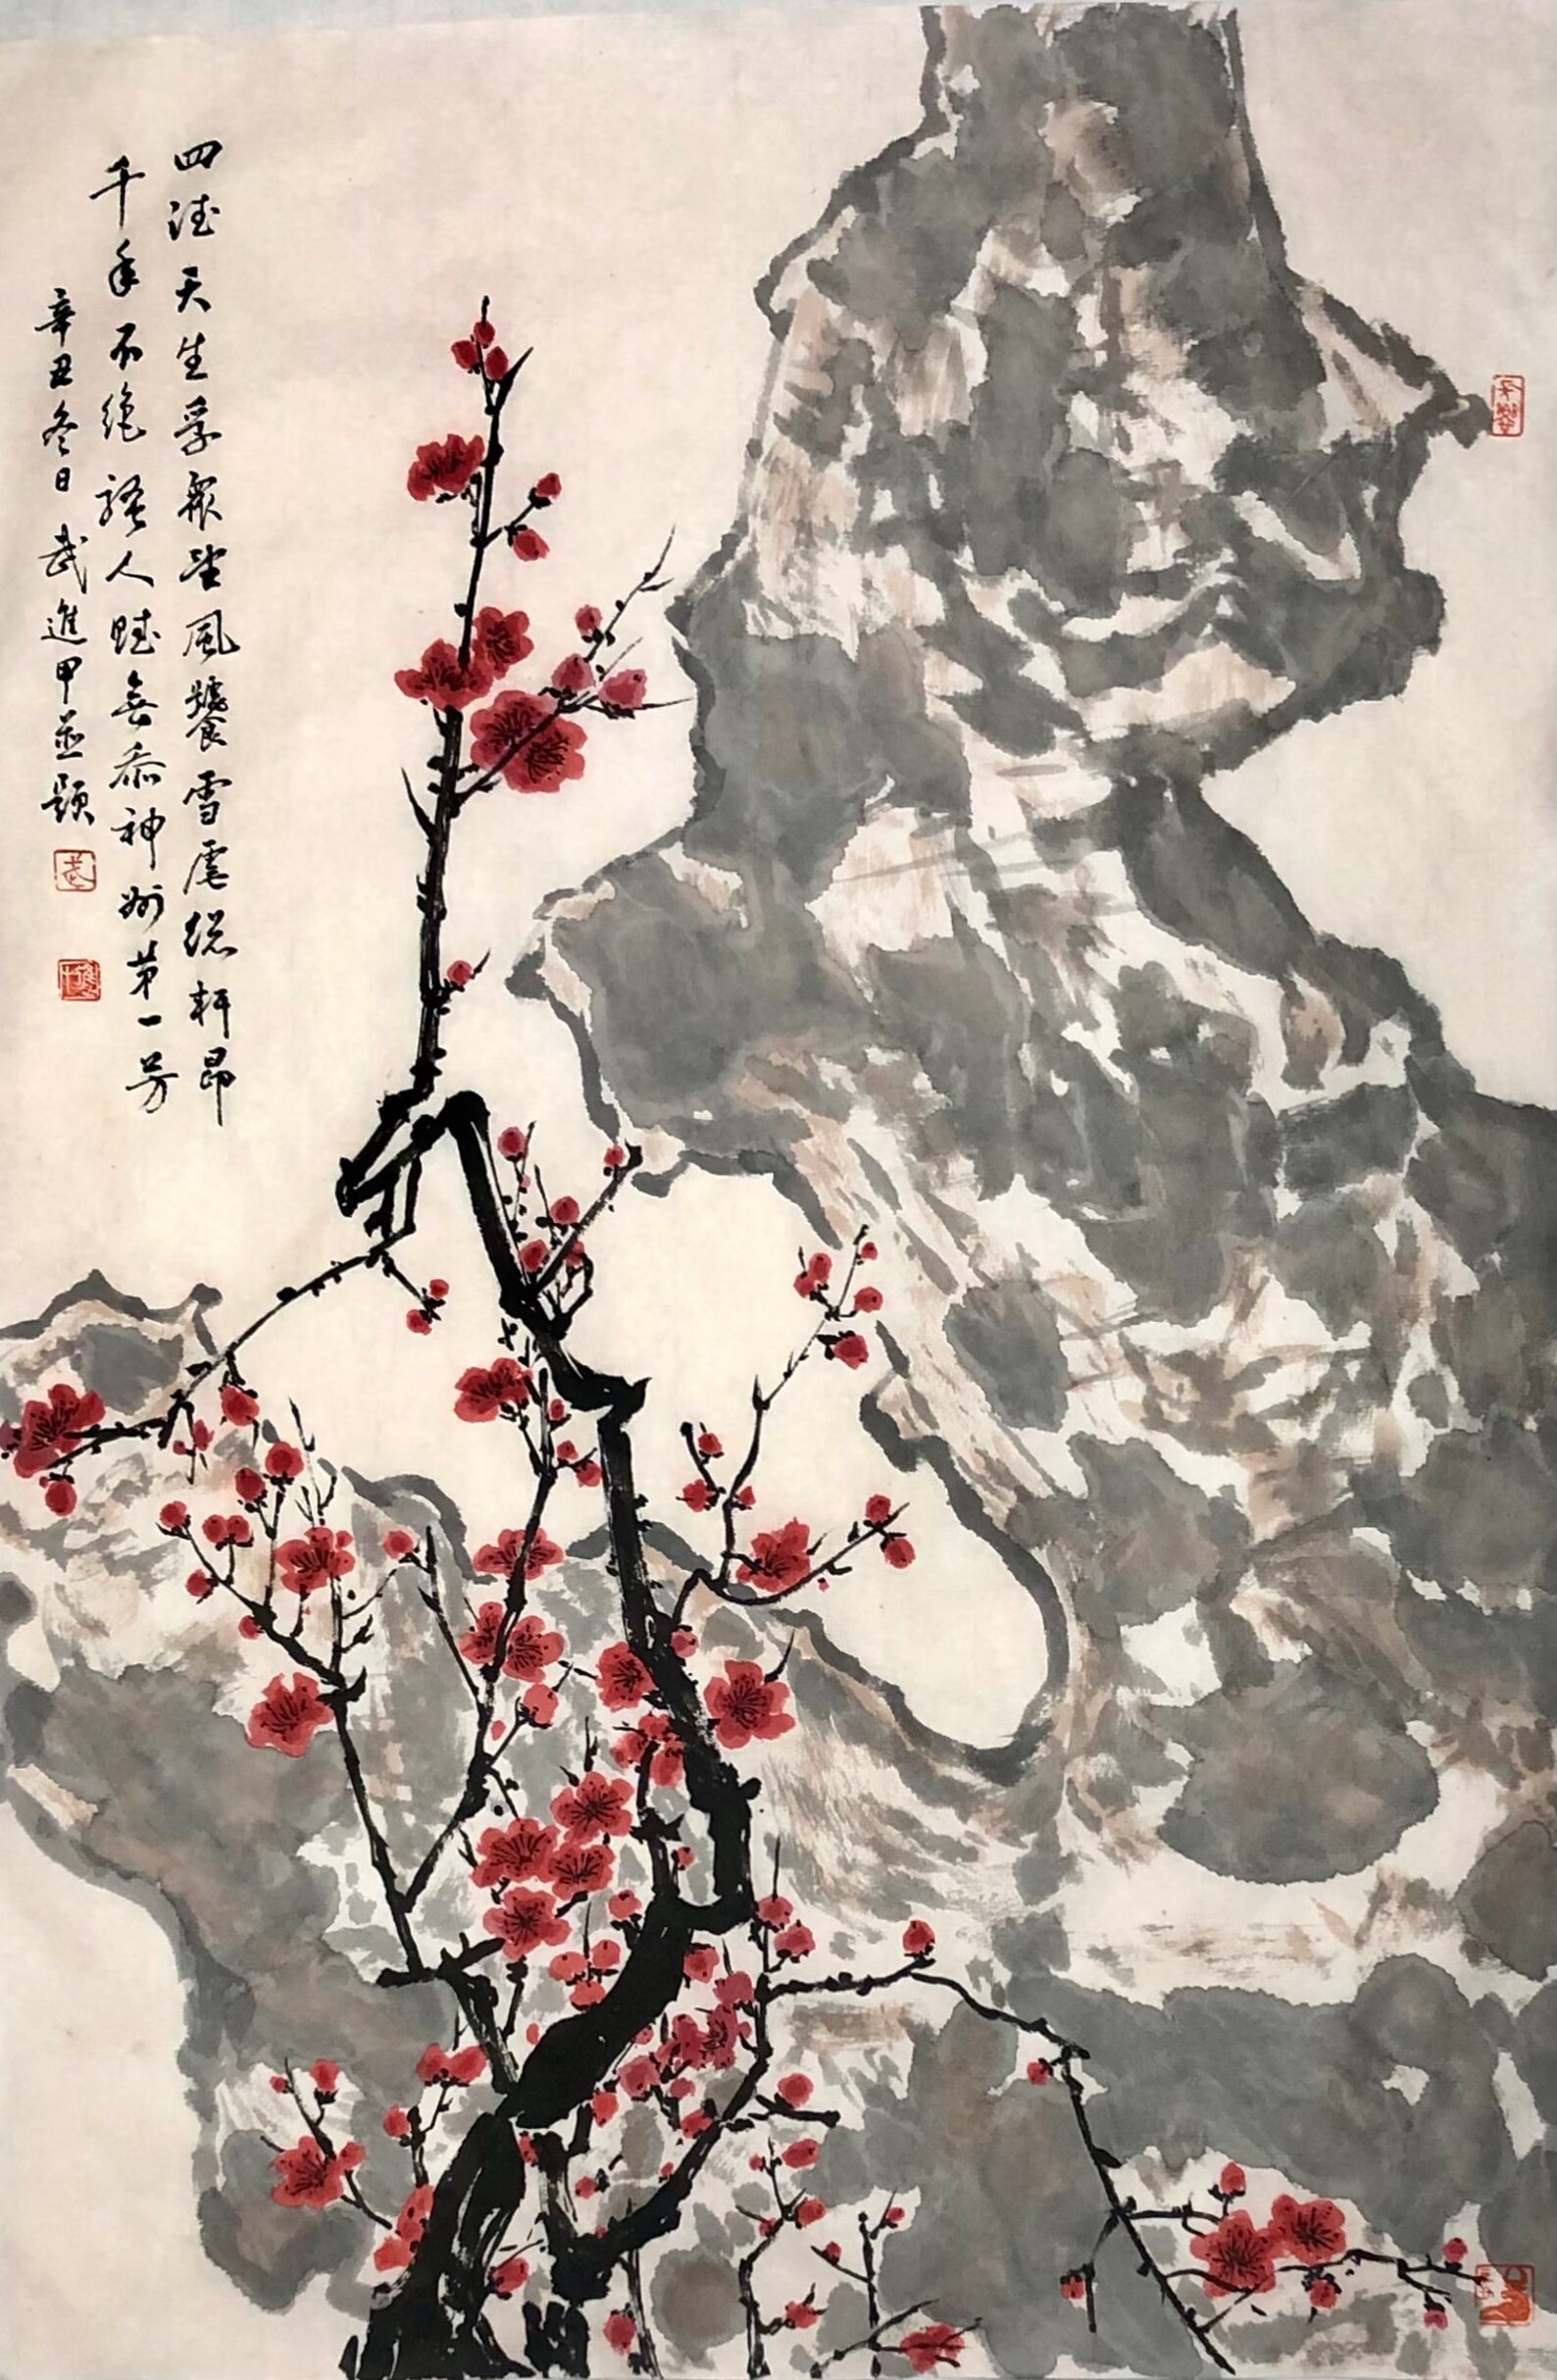 四德天生孚衆望風饕雪虐總軒昂
千年不絶騷人賦無忝神州第一芳
辛丑冬日武進甲並題
武